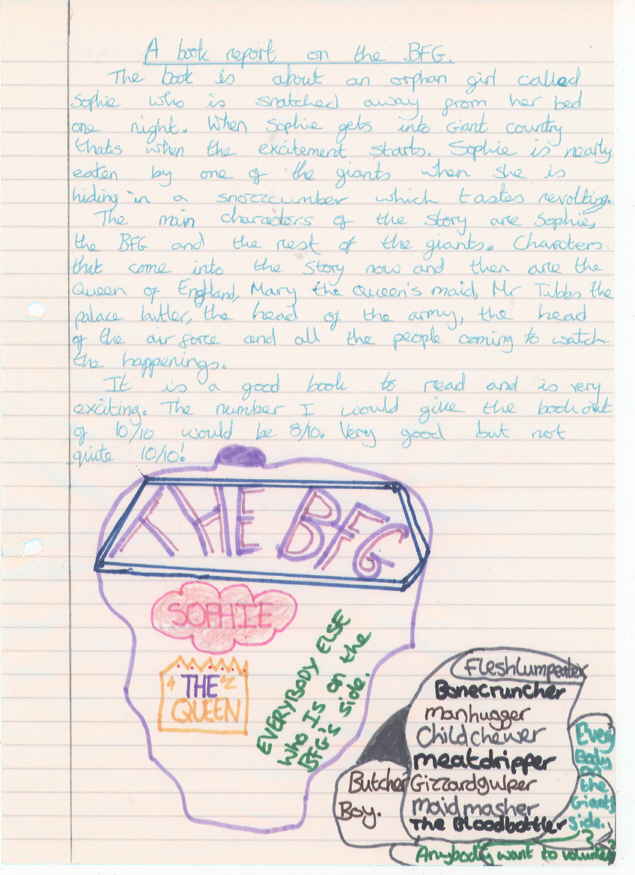 A book report on the BFG.
The book is about an orphan girl called
Sophie who is snatched away from her bed
one night. When Sophie gets into Giant country
thats when the excitement starts. Sophie is nearly
eaten by one of the giants when she is
hiding in a snozzcumber which tastes revolting.
The main charaters of the story are Sophie,
the BFG and the rest of the giants. Charaters
that come into the story now and then are the
Queen of England, Mary the Queen's maid, Mr Tibbs the
palace butler, the head of the army, the head
of the air force and all the people coming to watch
the happenings.
It is a good book to read and is very
exciting. The number I would give the book out
of 10/10 would be 8/10. Very good but not
quite 10/10!
THE BFG
SOPHIE
THE
QUEEN
EVERYBODY ELSE
who Is on the
BFG's side.
Fleshlumpeater
Bonecruncher
manhugger
Childchewer
meatdripper
Gizzardgulper
maid masher
The Bloodbottler
Butcher
Boy.
Every
Body
the
Giants
side.
Anybody want to volunteer